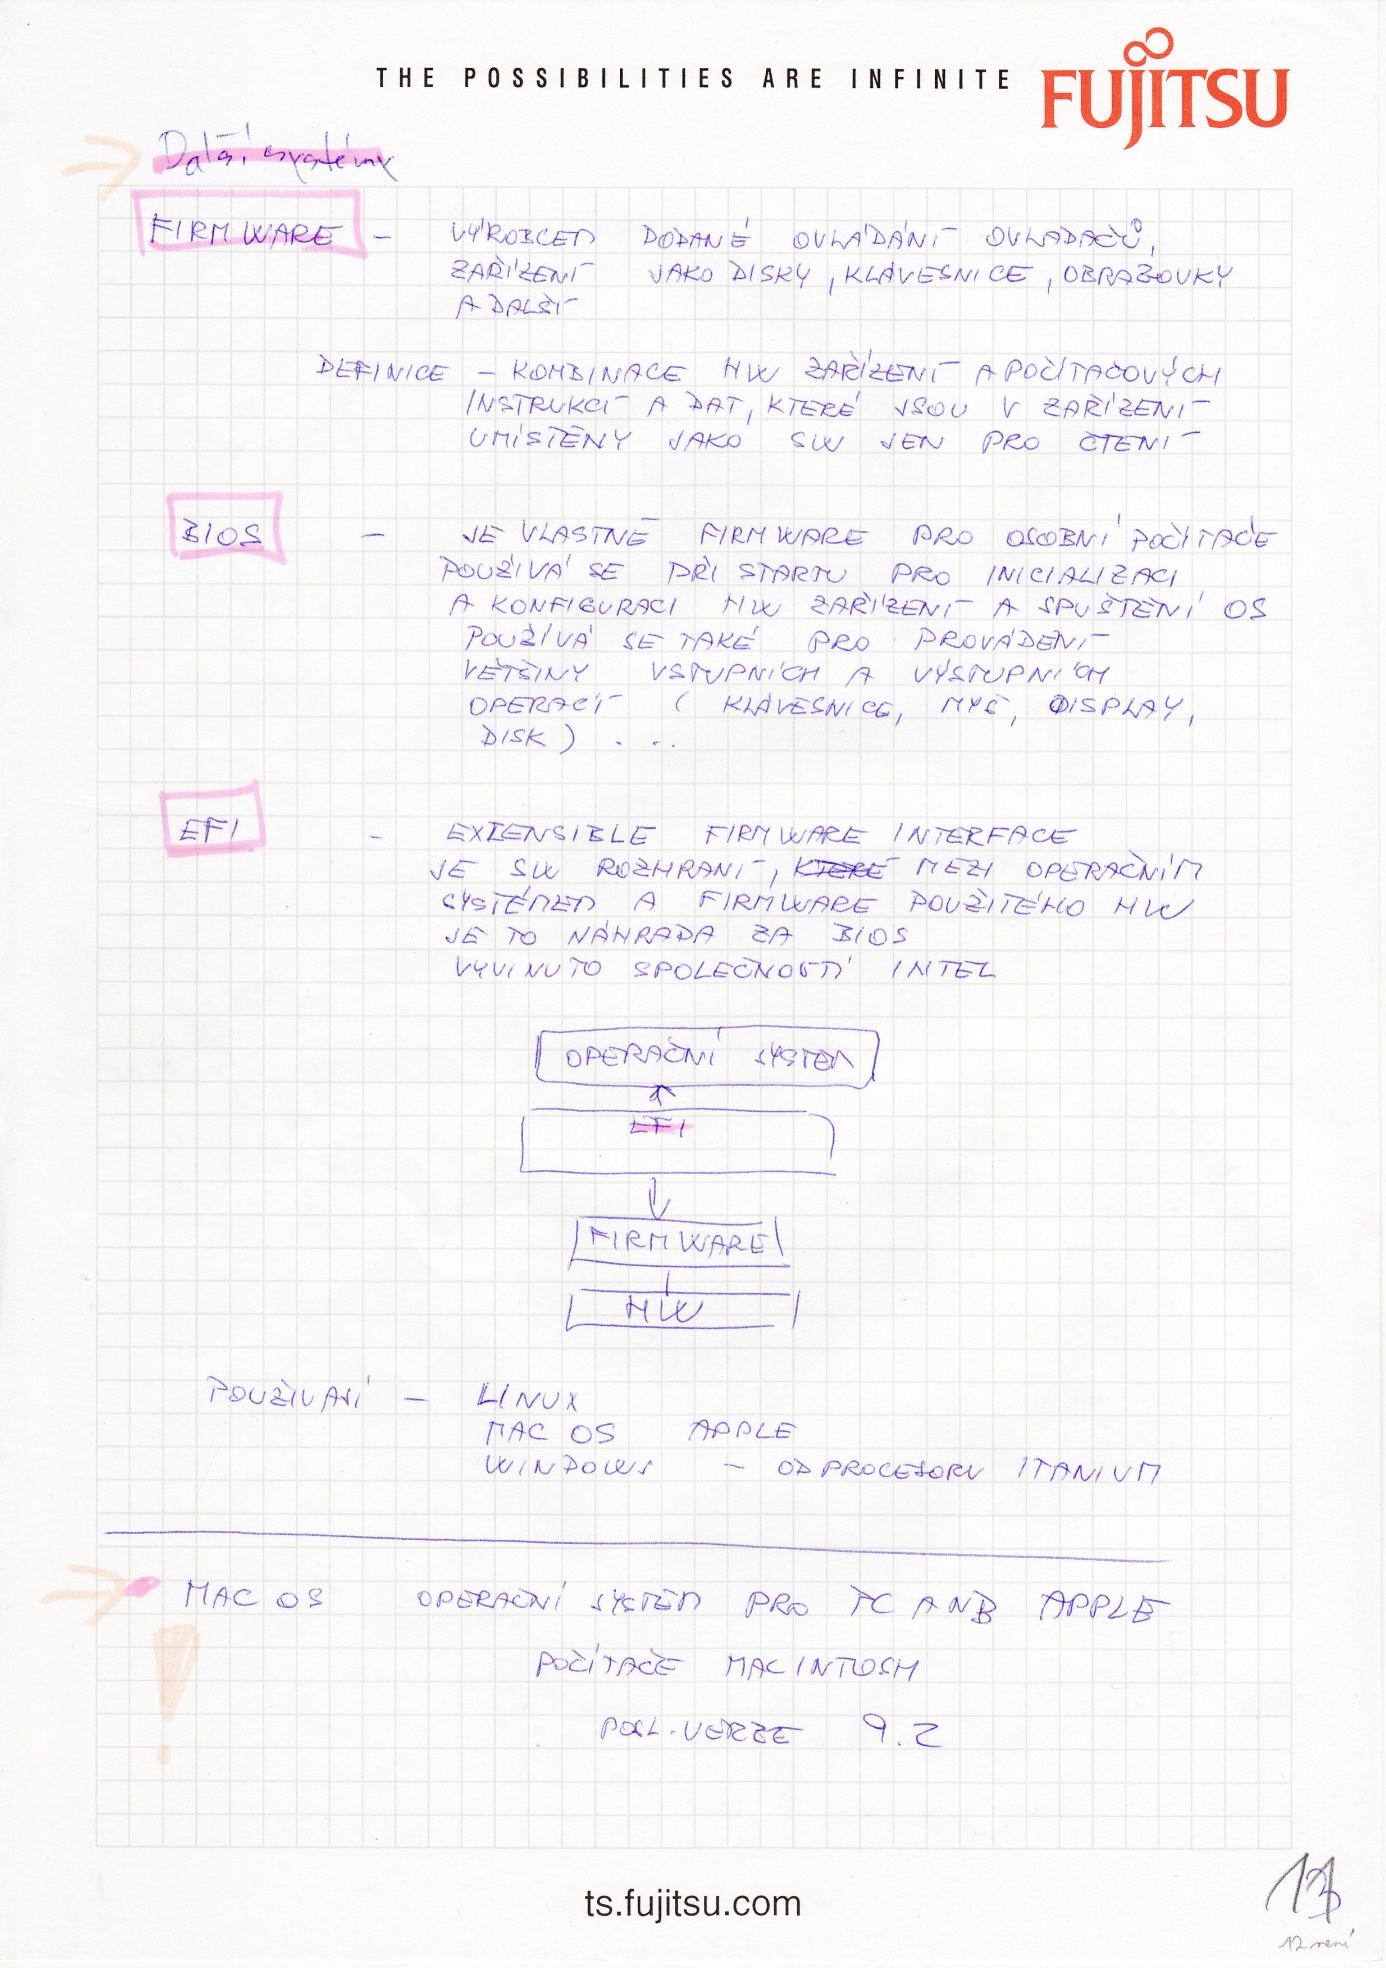 THE POSSIBILITIES ARE INFINITE
FUJITSU
Další systémy
FIRMWARE – VÝROBCEM DODANÉ OVLÁDÁNÍ OVLADAČŮ,
ZAŘÍZENÍ JAKO DISKY, KLÁVESNICE, OBRAZOVKY
A DALŠÍ
DEFINICE – KOMBINACE HW ZAŘÍZENÍ A POČÍTAČOVÝCH
INSTRUKCÍ A DAT, KTERÉ JSOU V ZAŘÍZENÍ
UMÍSTĚNY JAKO SW JEN PRO ČTENÍ
BIOS – JE VLASTNĚ FIRMWARE PRO OSOBNÍ POČÍTAČE
POUŽÍVÁ SE PŘI STARTU PRO INICIALIZACI
A KONFIGURACI HW ZAŘÍZENÍ A SPUŠTĚNÍ OS
POUŽÍVÁ SE TAKÉ PRO PROVÁDĚNÍ
VĚTŠINY VSTUPNÍCH A VÝSTUPNÍCH
OPERACÍ (KLÁVESNICE, MYŠ, DISPLAY,
DISK) ...
EFI – EXTENSIBLE FIRMWARE INTERFACE
JE SW ROZHRANÍ, KTERÉ MEZI OPERAČNÍM
SYSTÉMEM A FIRMWARE POUŽITÉHO HW
JE TO NÁHRADA ZA BIOS
VYVINUTO SPOLEČNOSTÍ INTEL
OPERAČNÍ SYSTÉM
EFI
FIRMWARE
HW
POUŽÍVAJÍ – LINUX
MAC OS APPLE
WINDOWS – OD PROCESORU ITANIUM
MAC OS OPERAČNÍ SYSTÉM PRO PC A NB APPLE
POČÍTAČE MACINTOSH
POSL. VERZE 9.2
ts.fujitsu.com
12 není